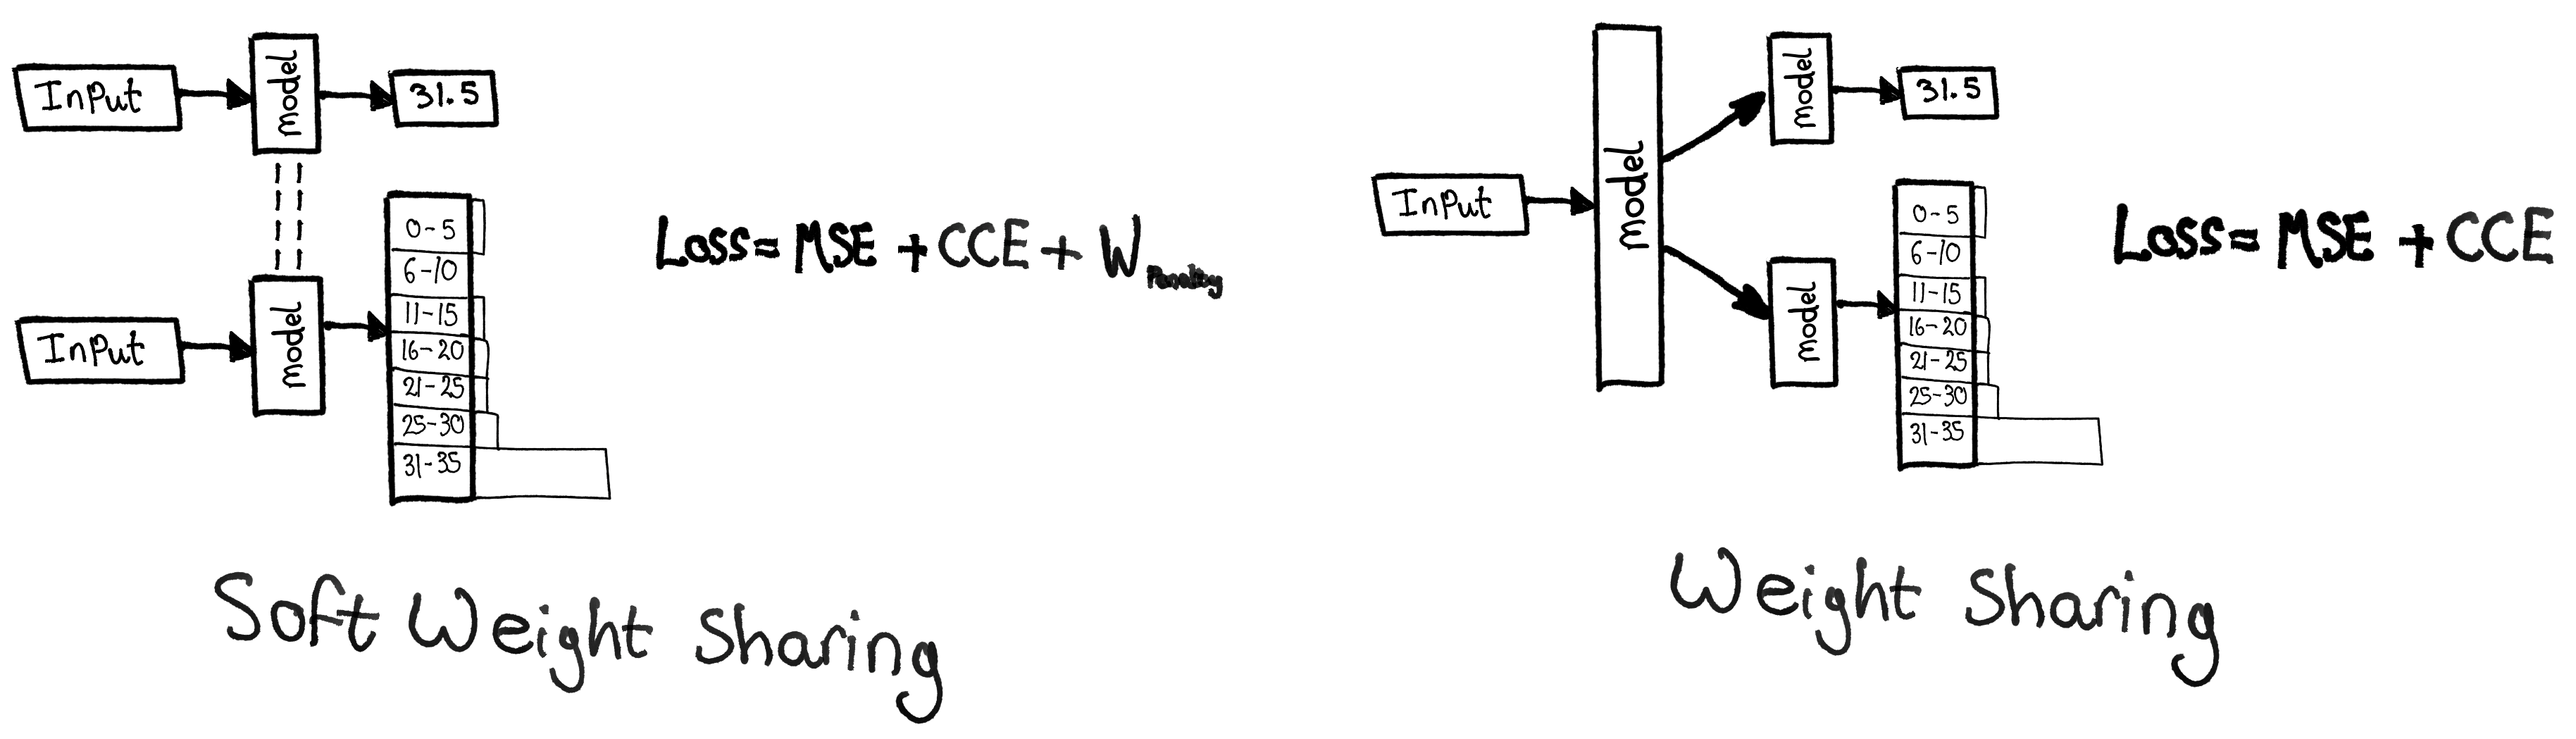 InPut
model
31.5
InPut
model
0-5
6-10
11-15
16-20
21-25
25-30
31-35
Loss= MSE + CCE + W Penality
Soft Weight Sharing
InPut
model
model
31.5
model
0-5
6-10
11-15
16-20
21-25
25-30
31-35
Loss= MSE + CCE
Weight Sharing